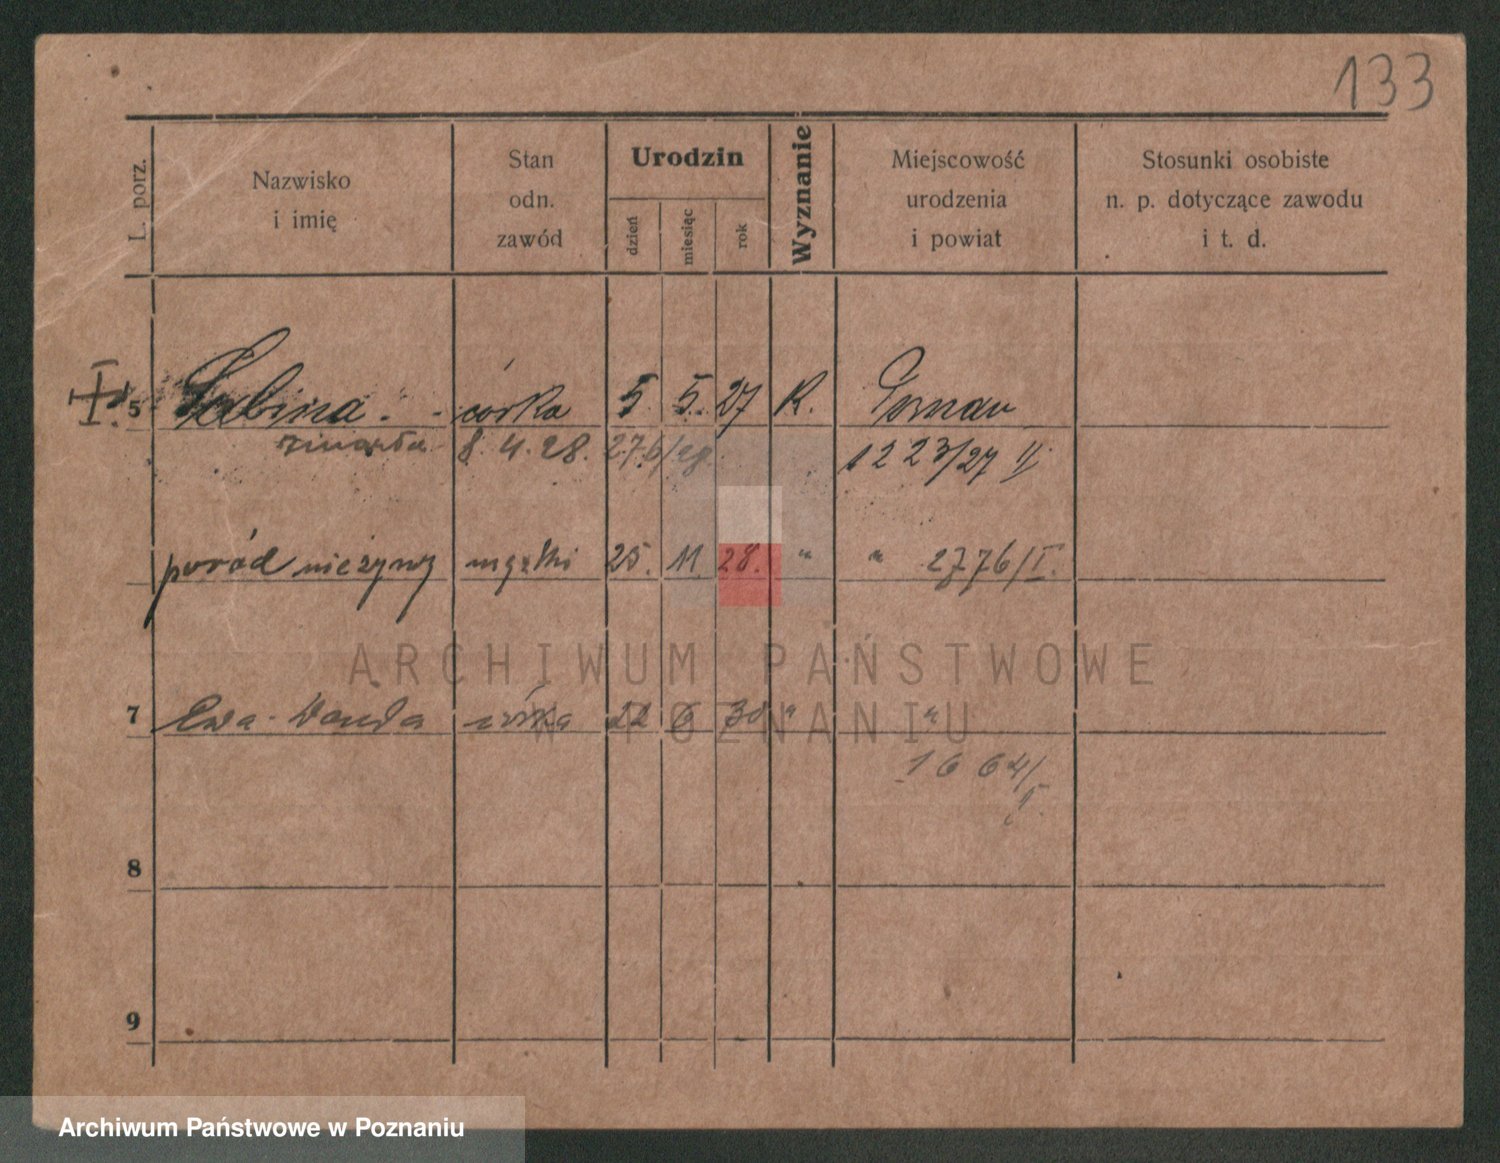 133
L. porz.
Nazwisko
i imię
Stan
odn.
zawód
Urodzin
dzień
miesiąc
rok
Wyznanie
Miejscowość
urodzenia
i powiat
Stosunki osobiste
n. p. dotyczące zawodu
i t. d.
5 Sabina córka 5. 5. 27 K. Poznań
zmarła 8. 4. 28. 1223/27 II
poród nieżywy męzki 25. 11. 28. " " 2776/I.
7 Ewa-Wanda córka 22 6 30 " "
1664/
8
9
ARCHIWUM PAŃSTWOWE
W POZNANIU
Archiwum Państwowe w Poznaniu